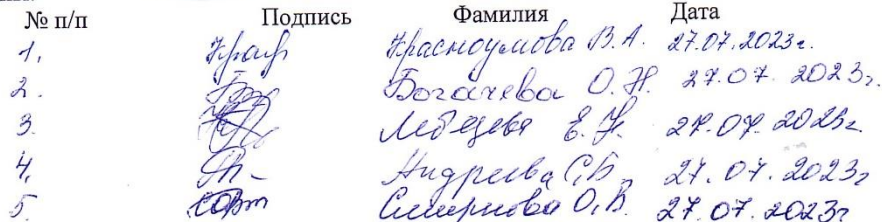 № п/п Подпись Фамилия Дата
1. Красноумова В.А. 27.07.2023г.
2. Богачева О.Н. 27.07.2023г.
3. Лебедева Е.Н. 27.07.2023г.
4. Андреева С.Б. 27.07.2023г
5. Смирнова О.В. 27.07.2023г